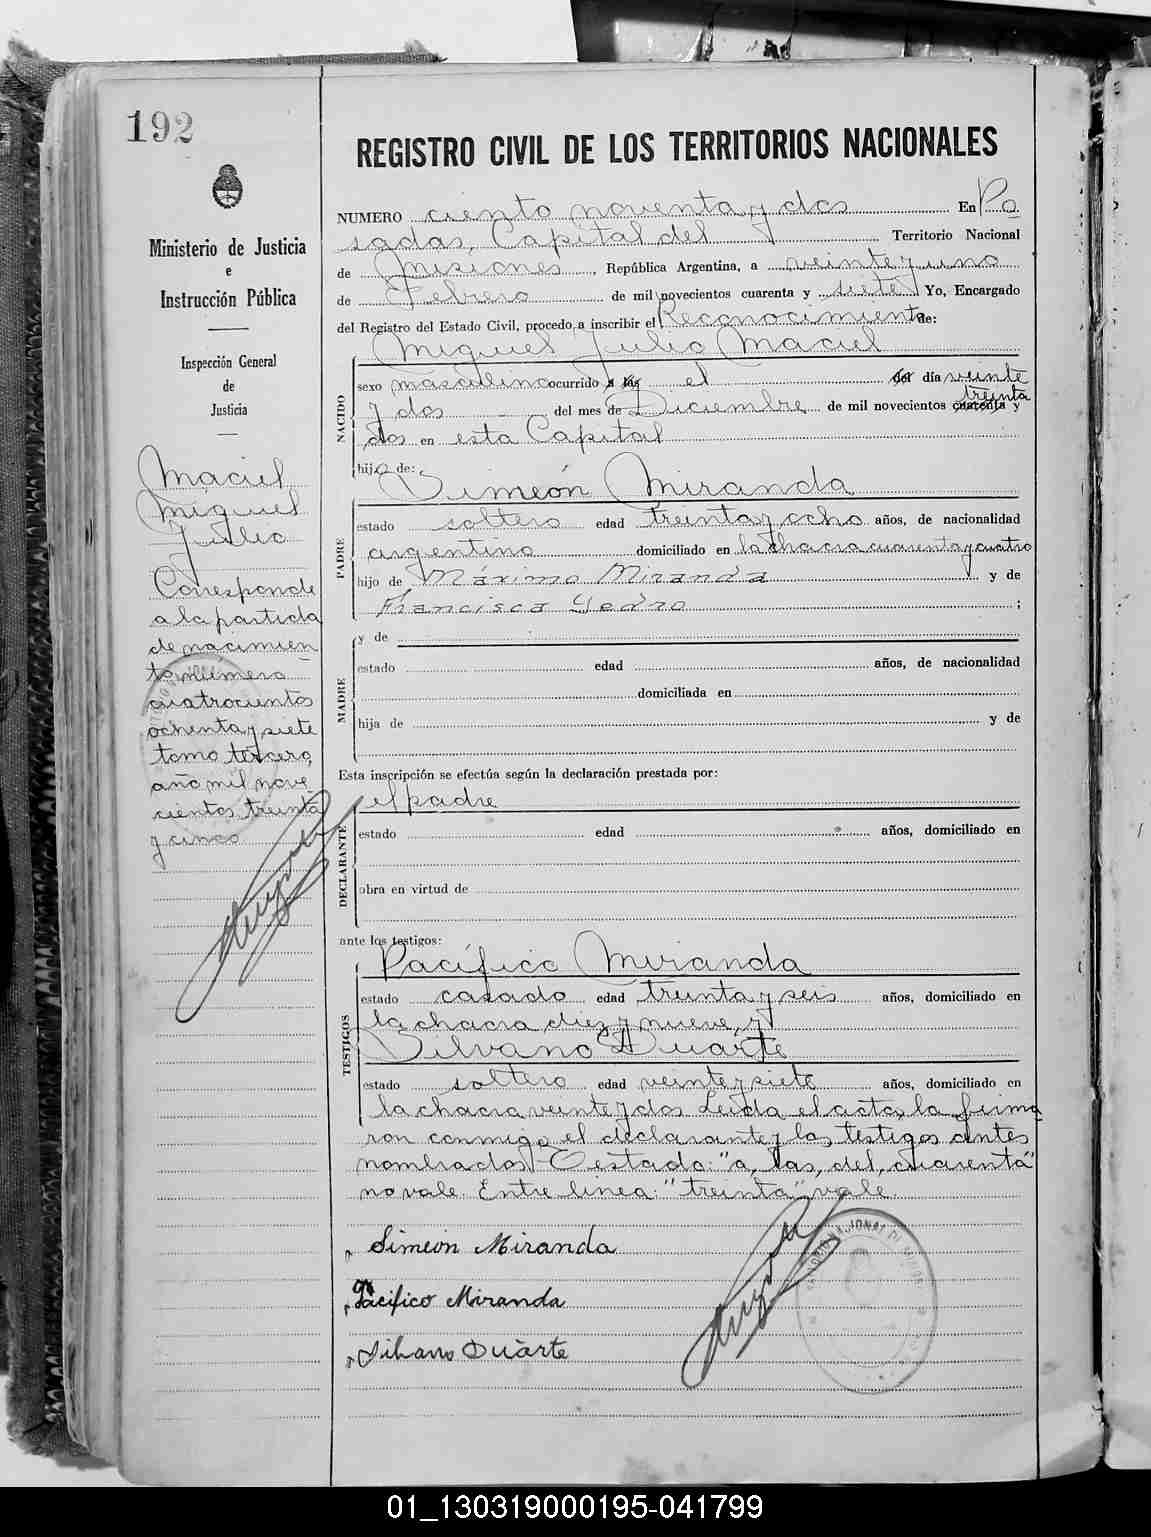 192
Ministerio de Justicia
e
Instrucción Pública
Inspección General
de
Justicia
Maciel
Miguel
Julio
Corresponde
a la partida
de nacimien
to número
cuatrocientos
ochenta y siete
tomo tercero,
año mil nove
cientos treinta
y cinco
REGISTRO CIVIL DE LOS TERRITORIOS NACIONALES
NUMERO ciento noventa y dos En Po
sadas, Capital del Territorio Nacional
de Misiones, República Argentina, a veinte y uno
de Febrero de mil novecientos cuarenta y siete Yo, Encargado
del Registro del Estado Civil, procedo a inscribir el Reconocimiento de:
Miguel Julio Maciel
NACIDO
sexo masculino ocurrido a las el del día veinte
treinta
y dos del mes de Diciembre de mil novecientos cuarenta y
dos en esta Capital
hijo de:
Simeón Miranda
PADRE
estado soltero edad treinta y ocho años, de nacionalidad
argentino domiciliado en la chacra cuarenta y cuatro
hijo de Máximo Miranda y de
Francisca Yedro ;
y de
MADRE
estado edad años, de nacionalidad
domiciliada en
hija de y de
Esta inscripción se efectúa según la declaración prestada por:
el padre
DECLARANTE
estado edad años, domiciliado en
obra en virtud de
ante los testigos:
Pacífico Miranda
TESTIGOS
estado casado edad treinta y seis años, domiciliado en
la chacra diez y nueve, y
Silvano Duarte
estado soltero edad veinte y siete años, domiciliado en
la chacra veinte y dos Leída el acta, la firma
ron conmigo el declarante y los testigos antes
nombrados- Testado: "a, las, del, cuarenta"
no vale. Entre línea: "treinta" vale.
Simeón Miranda
Pacifico Miranda
Silvano Duarte
01_130319000195-041799